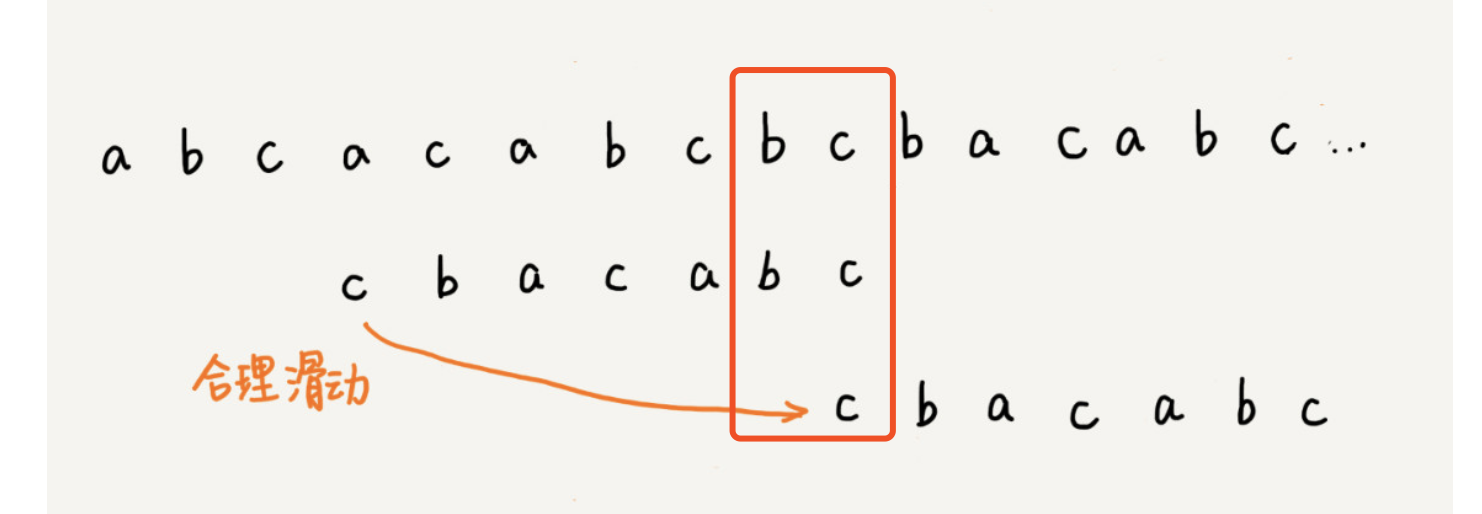 a b c a c a b c b c b a c a b c ...
c b a c a b c
合理滑动
c b a c a b c